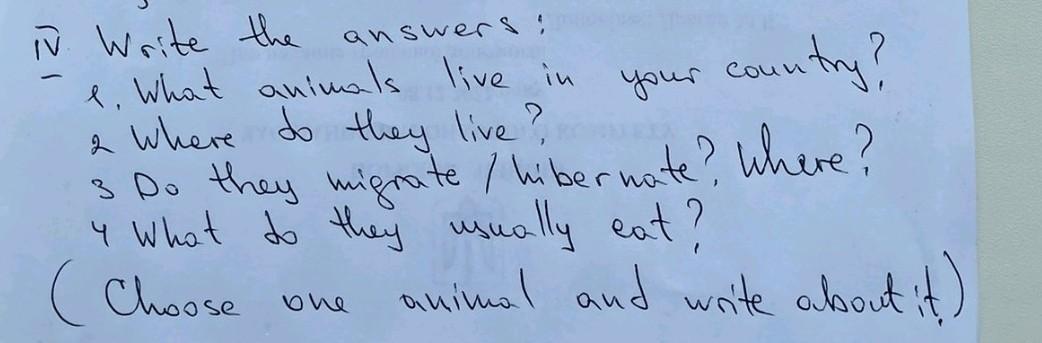 IV Write the answers:
1. What animals live in your country?
2 Where do they live?
3 Do they migrate / hibernate? Where?
4 What do they usually eat?
(Choose one animal and write about it.)